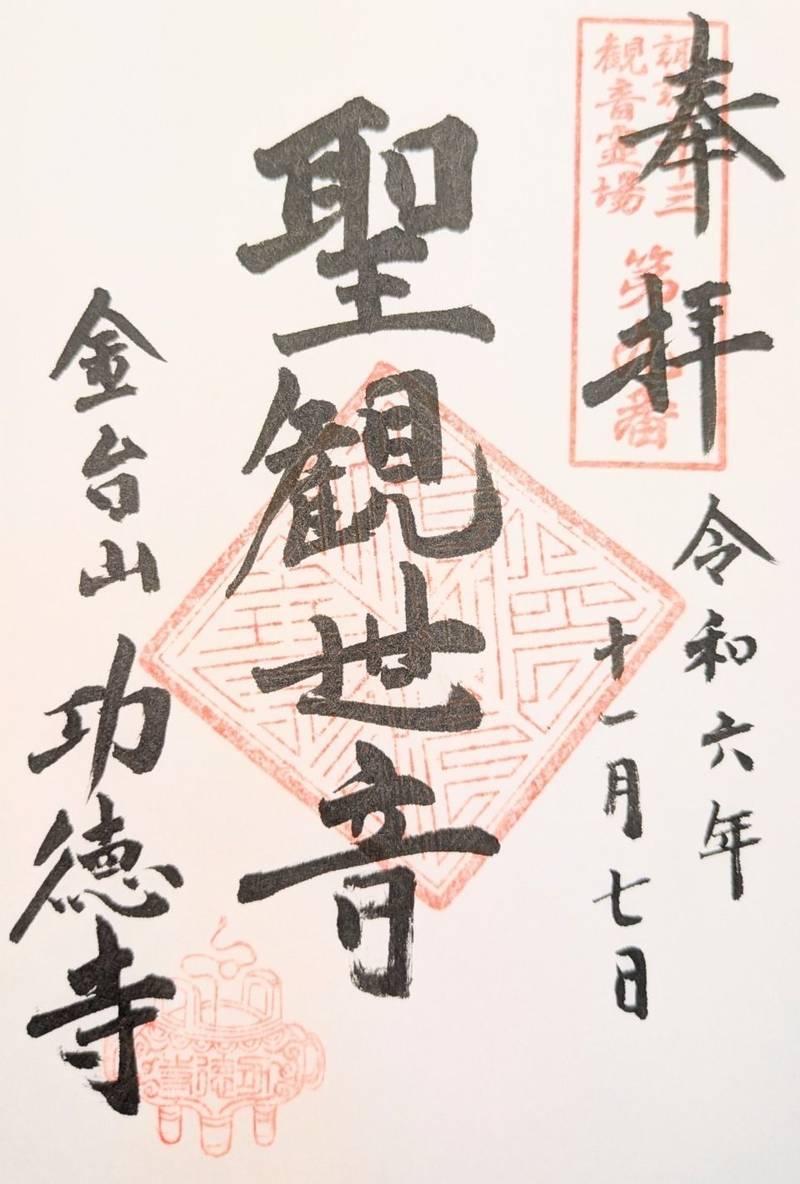 奉拝
三
観音霊場
第
番
令和六年
十一月七日
聖観世音
金台山
功徳寺